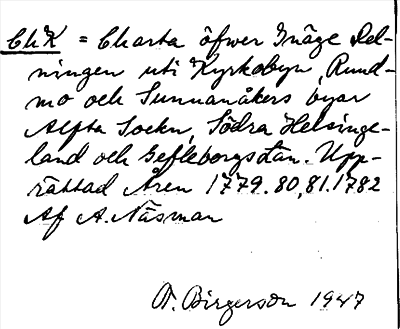 Ch K = Charta öfwer Inäge Del-
ningen uti Kyrkobyn, Rund-
mo och Sunnanåkers byar
Alfta Sockn, Södra Helsinge-
land och Gefleborgs Län. Upp-
rättad Åren 1779. 80, 81. 1782
Af A. Näsman
A. Birgerson 1947